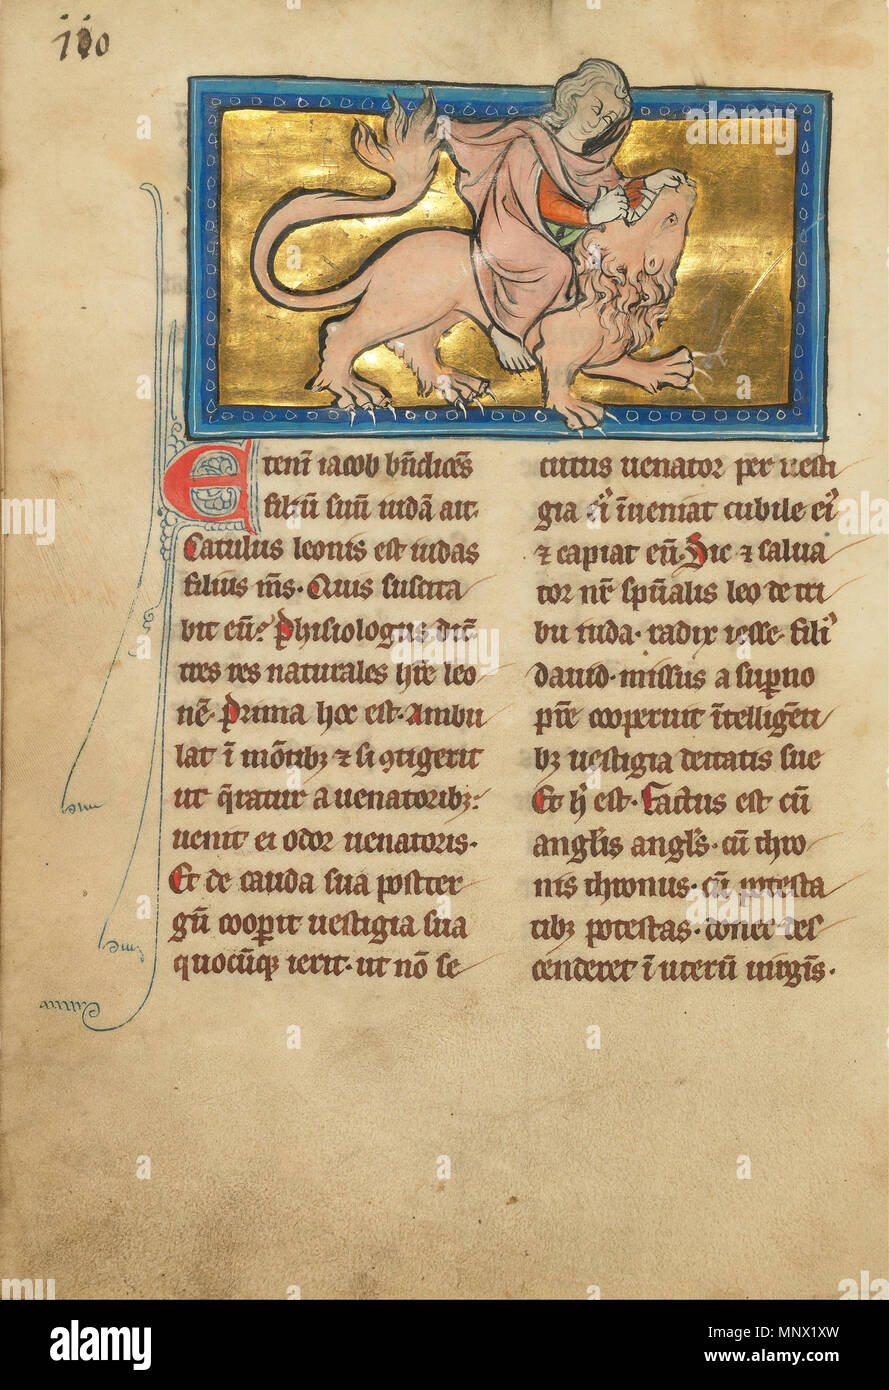 110
Eteni iacob bn̄dicēs
filiū suū iudā ait·
Catulus leonis est iudas
filius m̄s· Quis suscita
bit eū? Phisiologus dic̄
tres res naturales hr̄e leo
nē· Prima hoc est· Ambu
lat ī mōtibꝫ ⁊ si ꝯtigerit
ut q̄ratur a uenatoribꝫ:
uenit ei odor uenatoris·
Et de cauda sua poster
gū coop̄it uestigia sua
quocūqꝫ ierit· ut nō se
cutus uenator per uesti
gia ei᾿ īueniat cubile ei᾿
⁊ capiat eū· Hic ⁊ salua
tor nr̄ sp̄ualis leo de tri
bu iuda· radix iesse· fili᾿
dauid· missus a sup̄no
pr̄e cooperuit ītelligēti
bꝫ uestigia deitatis sue
Et h᾿ est· Factus est cū
angl̄is angl̄s· cū thro
nis thronus· cū potesta
tibꝫ potestas· donec des
cenderet ī uterū uirgīs·
alamy
Image ID: MNX1XW
www.alamy.com